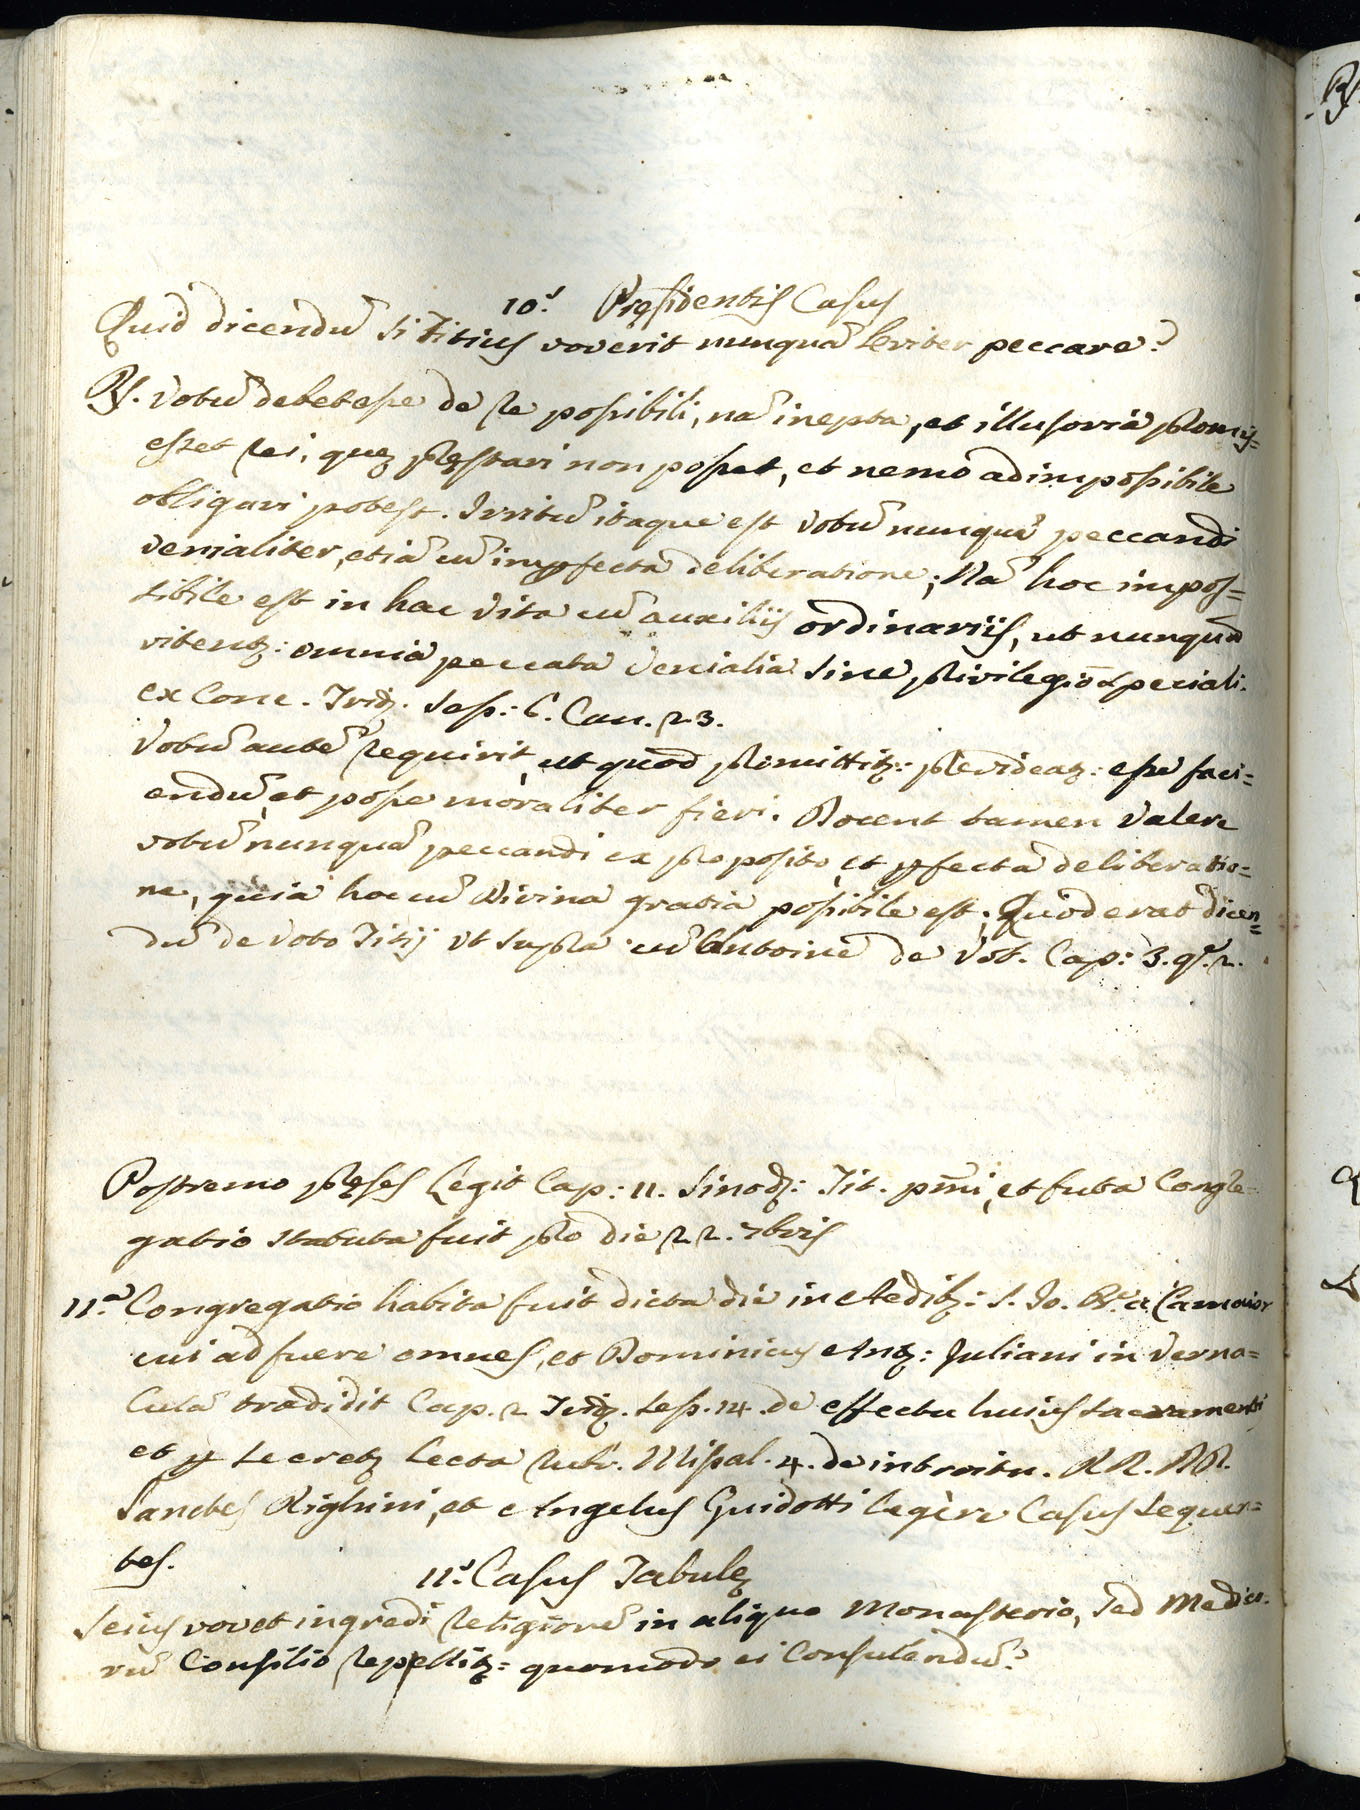 10.s Pręsidentis Casus
Quid dicendū si Titius voverit nunquā leviter peccare?
R. Votū debet esse de re possibili, nā inepta, et illusoria promis=
esset rei, quę pręstari non posset, et nemo ad impossibile
obligari potest. Irritū itaque est votū nunquā peccandi
venialiter, etiā cū imperfecta deliberatione; Nā hoc impos=
sibile est in hac vita cū auxiliis ordinariis, ut nunquā
vitentʒ: omnia peccata venialia sine privilegio speciali.
ex Conc. Tridʒ. Sess: 6. Can. 23.
Votū autē requirit, ut quod promittitʒ: prevideaʒ: esse faci=
endū, et posse moraliter fieri. Docent tamen valere
votū nunquā peccandi ex proposito, et perfecta deliberatio=
ne, quia hoc cū Divina gratia possibile est; Quod erat dicen=
dū de voto Titij ut supra cū Antoine de Vot. Cap: 3. q. 2.
Postremo pręses legit Cap: 11. Sinodʒ: Tit. pmi, et futa Congre=
gatio statuta fuit pro die 22. 7bris
11.a Congregatio habita fuit dicta die in Aedibʒ: S. Jo. Bē a Camaior
cui adfuere omnes, et Dominicus Antʒ: Juliani in verna=
culā tradidit Cap. 2 Tridʒ. Sess. 14 de effectu huius sacramenti
et per secretʒ lecta rubr. Missal. 4. de introitu. RR. DD.
Sanctes Righini, et Angelus Guidotti legère Casus sequen=
tes.
11.s Casus Tabulę
Seius vovet ingredi religionē in aliquo Monasterio, sed Medico=
rū Consilio repellitʒ= quomodo ei Consulendū?